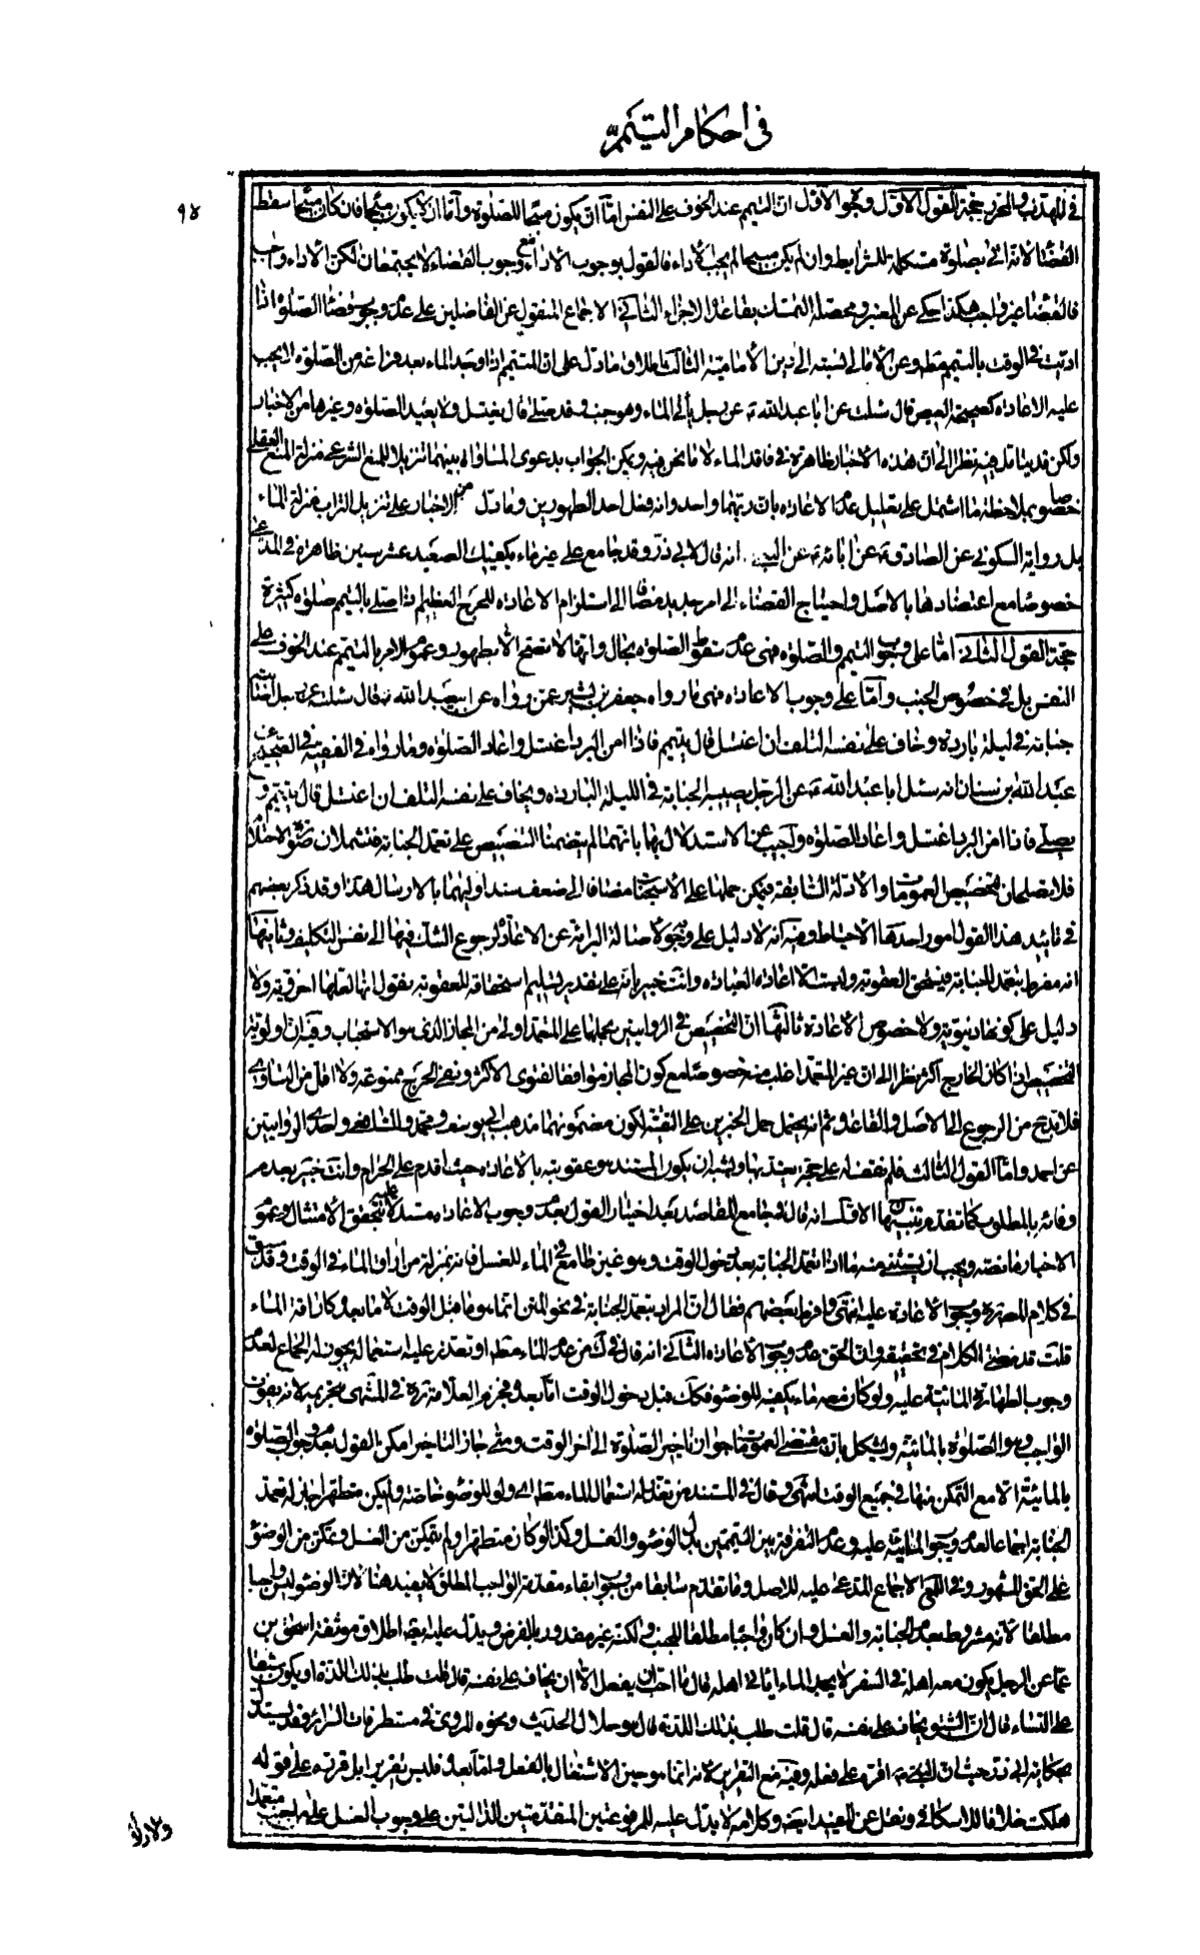 في احكام التيمم
٩٤
في المهذب والتحرير حجة القول الاول وهو الاقوى ان التيمم عند الخوف على النفس اما ان يكون مبيحا للصلوة واما ان لا يكون مبيحا فان كان مبيحا سقط
القضاء لانه اتى بصلوة مستكملة للشرايط وان لم يكن مبيحا لم يجب الاداء فالقول بوجوب الاداء مع وجوب القضاء لا يجتمعان لكن الاداء واجب
فالقضاء غير واجب هكذا حكي عن المعتبر ومحصله التمسك بقاعدة الاجزاء الثاني الاجماع المنقول عن الفاضلين على عدم وجوب قضاء الصلوة اذا
اديت في الوقت بالتيمم مطلقا وعن الامالي نسبته الى دين الامامية الثالث اطلاق ما دل على ان المتيمم اذا وجد الماء بعد فراغه من الصلوة لا يجب
عليه الاعادة كصحيحة العيص قال سئلت عن ابا عبد الله ع عن رجل يأتي الماء وهو جنب وقد صلى قال يغتسل ولا يعيد الصلوة وغيرها من الاخبار
ولكن قد يتامل فيه نظرا الى ان هذه الاخبار ظاهرة في فاقد الماء لا ما نحن فيه ويمكن الجواب بدعوى المساواة بينهما تنزيلا للمنع الشرعي منزلة المنع العقلي
خصوصا بملاحظة ما اشتمل على تعليل عدم الاعادة بان ربهما واحد وانه فعل احد الطهورين وما دل من الاخبار على تنزيل التراب منزلة الماء
بل رواية السكوني عن الصادق ع عن ابائه ع عن النبي انه قال لابي ذر وقد جامع على غير ماء يكفيك الصعيد عشر سنين ظاهرة في المدعى
خصوصا مع اعتضادها بالاصل واحتياج القضاء الى امر جديد مضافا الى استلزام الاعادة للحرج العظيم اذا صلى بالتيمم صلوة كثيرة
حجة القول الثاني اما على وجوب التيمم والصلوة فهي عدم سقوط الصلوة بحال وانها لا تصح الا بطهور وعموم الامر بالتيمم عند الخوف على
النفس بل في خصوص الجنب واما على وجوب الاعادة فهي ما رواه جعفر بن بشير عمن رواه عن ابي عبد الله ع قال سئلته عن رجل اصابته
جنابة في ليلة باردة وخاف على نفسه التلف ان اغتسل قال يتيمم فاذا امن البرد اغتسل واعاد الصلوة وما رواه في الفقيه في الصحيح عن
عبد الله بن سنان انه سئل ابا عبد الله ع عن الرجل يصيبه الجنابة في الليلة الباردة ويخاف على نفسه التلف ان اغتسل قال يتيمم و
يصلي فاذا امن البرد اغتسل واعاد الصلوة واجيب عن الاستدلال بهما بانهما لم يتضمنا التنصيص على تعمد الجنابة فتشملان صورة الاحتلام
فلا تصلحان لتخصيص العمومات والادلة السابقة فيمكن حملها على الاستحباب مضافا الى ضعف سند اوليهما بالارسال هذا وقد ذكر بعضهم
في تاييد هذا القول امورا احدها الاحتياط وفيه انه لا دليل على وجوبه لاصالة البرائة عن الاعادة لرجوع الشك فيها الى نفس التكليف وثانيها
انه مفرط بتعمد الجنابة فيستحق العقوبة وليست الا اعادة العبادة وانت خبير بانه على تقدير تسليم استحقاقه للعقوبة نقول انها لعلها اخروية ولا
دليل على كونها دنيوية ولا خصوص الاعادة ثالثها ان التخصيص في الروايتين بحملها على المتعمد اولى من المجاز الذي هو الاستحباب وفيه ان اولوية
التخصيص اذا كان الخارج اكثر نظرا الى ان غير المتعمد اغلب منه خصوصا مع كون المجاز موافقا لفتوى الاكثر ونفي الحرج ممنوعة ولا اقل من التساوي
فلا بد ح من الرجوع الى الاصل والقاعدة ثم انه يحتمل حمل الخبرين على التقية لكون مضمونهما مذهب ابي يوسف ومحمد والشافعي واحدى الروايتين
عن احمد واما القول الثالث فلم نقف له على حجة يعتد بها ويشبه ان يكون المستند هو عقوبته بالاعادة حيث اقدم على الحرام وانت خبير بعدم
وفائه بالمطلوب كما تقدم تنبيهان الاول انه قال في جامع المقاصد بعد اختيار القول بعدم وجوب الاعادة مستدلا عليه بتحقق الامتثال وعموم
الاخبار ما نصه ويجب ان يستثنى منه ما اذا تعمد الجنابة بعد دخول الوقت وهو غير طامع في الماء للغسل فانه بمنزلة من اراق الماء في الوقت وقد سبق
في كلام المصره وجوب الاعادة عليه انتهى وافرط بعضهم فقال ان المراد بتعمد الجنابة في نحو المتن انما هو ما قبل الوقت لا ما بعده وكان فاقد الماء
قلت قد مضى الكلام في تحقيقه وان الحق عدم وجوب الاعادة الثاني انه قال في ك من عدم الماء مطلقا او تعذر عليه استعماله يجوز له الجماع لعدم
وجوب الطهارة المائية عليه ولو كان معه ماء يكفيه للوضوء فكك قبل دخول الوقت اما بعده فجزم العلامة ره في المنتهى بتحريمه لانه يفوت
الواجب وهو الصلوة بالمائية ويشكل بان مقتضى العمومات جواز تاخير الصلوة الى اخر الوقت ومتى جاز التاخير امكن القول بعدم وجوب الصلوة
بالمائية الا مع التمكن منها في جميع الوقت انتهى وقال في المستند من تعذر له استعمال الماء مطلقا اي ولو للوضوء خاصة ولم يكن متطهرا جاز له تعمد
الجنابة اجماعا لعدم وجوب المائية عليه وعدم التفرقة بين التيممين بدل الوضوء والغسل وكذا لو كان متطهرا ولم يتمكن من الغسل وتمكن من الوضوء
على الحق المشهور وفي اللوامع الاجماع المدعى عليه للاصل وما تقدم سابقا من وجوب ابقاء مقدمة الواجب المطلق لا يفيد هنا لان الوضوء ليس واجبا
مطلقا لانه مشروط بعدم الجنابة والغسل وان كان واجبا مطلقا للجنب ولكنه غير مقدور بالفرض ويدل عليه ايضا اطلاق موثقة اسحق بن
عمار عن الرجل يكون معه اهله في السفر لا يجد الماء ايأتي اهله قال ما احب ان يفعل الا ان يخاف على نفسه قال قلت طلب بذلك اللذة او يكون شبقا
على النساء قال ان الشبق يخاف على نفسه قال قلت طلب بذلك اللذة قال هو حلال الحديث ونحوه المروي في مستطرفات السرائر وقد يستدل
بحكاية ابي ذر حيث ان النبي ص اقره على فعله وفيه منع التقرير لانه انما هو حين الاشتغال بالفعل واما بعده فليس بتقرير بل قرره على قوله
هلكت خلافا للاسكافي ونقل عن المفيد ايضا وكلامه لا يدل عليه للمرفوعتين المتقدمتين الدالتين على وجوب الغسل على من اجنب متعمدا
ولا دلالة